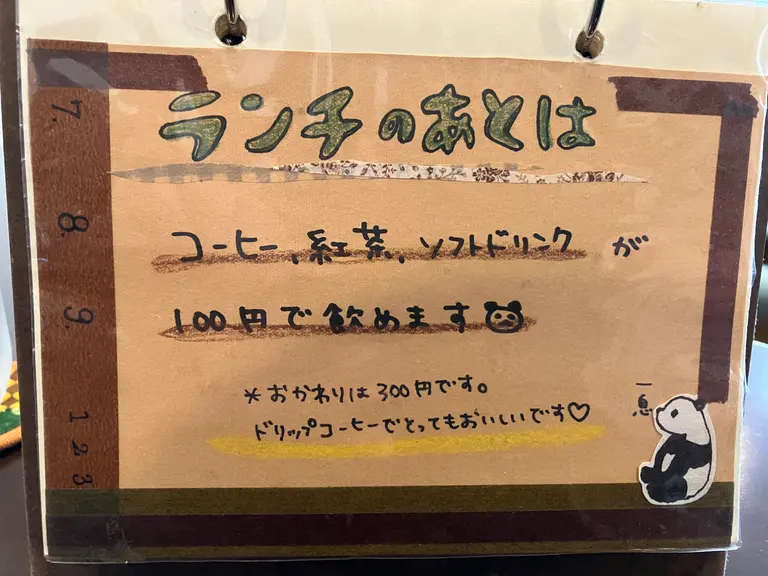 ランチのあとは
コーヒー、紅茶、ソフトドリンク が
100円で飲めます
*おかわりは300円です。
ドリップコーヒーでとってもおいしいです♡
一息
7.
8.
9.
1 2 3